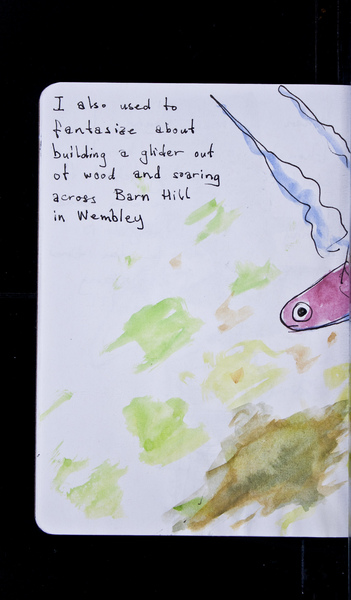 I also used to
fantasize about
building a glider out
of wood and soaring
across Barn Hill
in Wembley